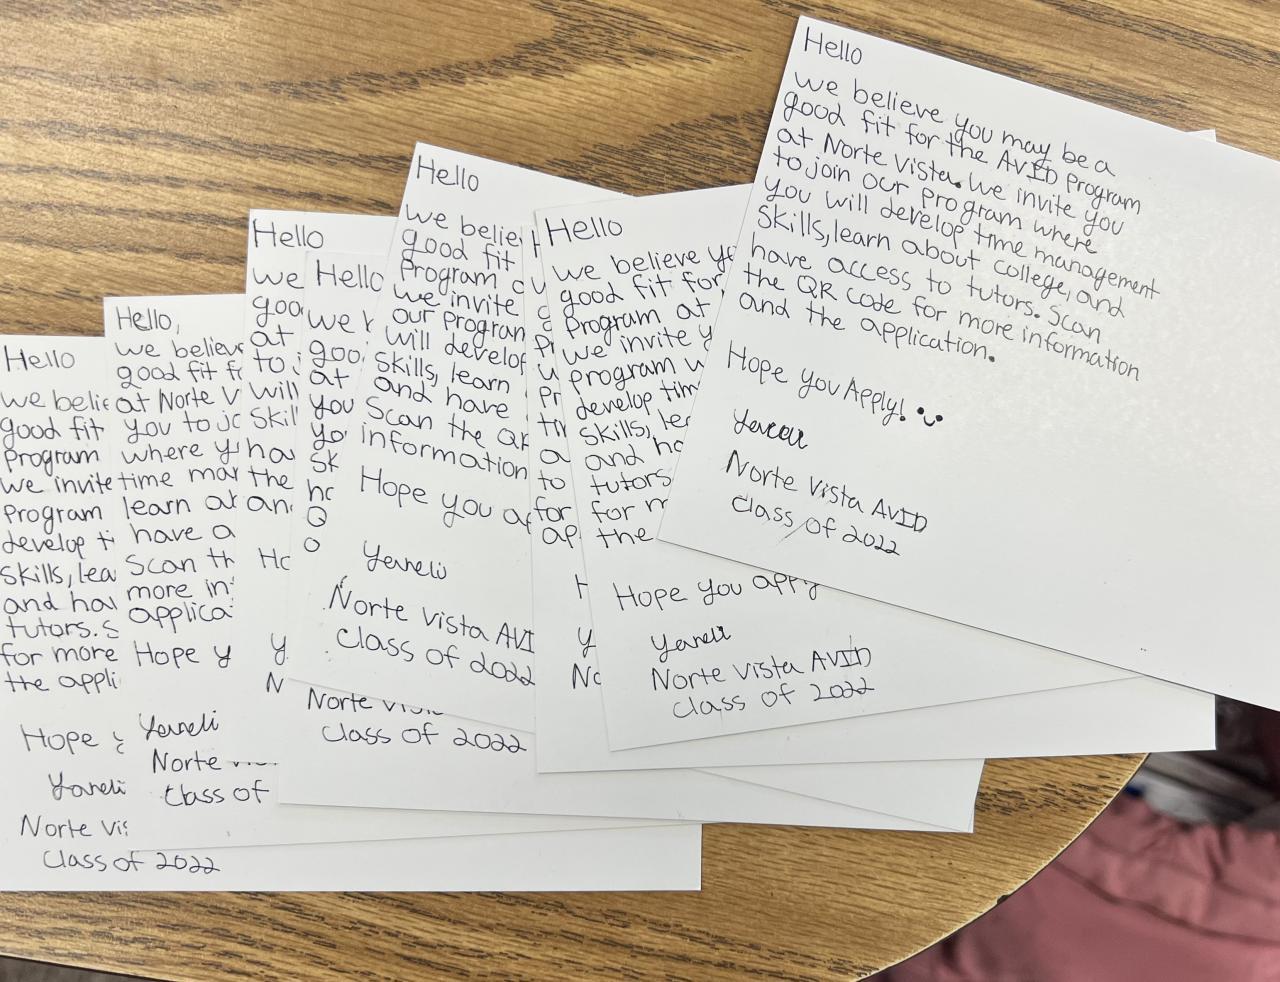 Hello
we believe you may be a
good fit for the AVID Program
at Norte Vista. We invite you
to join our program where
you will develop time management
skills, learn about college, and
have access to tutors. Scan
the QR code for more information
and the application.
Hope you Apply!
Norte Vista AVID
class of 2022
Hello
we believe
good fit for
Program at
we invite
program
develop
skills,
and
tutors
for
the
Hope you apply
Yareli
Norte Vista AVID
class of 2022
Hello
we
good fit
Program
we invite
our program
will develop
skills, learn
and have
Scan the QR
information
Hope you
Yareli
Norte Vista AVI
class of 2022
Hello
we
at
you
Norte
class of 2022
Hello
we
at
to
will
the
Hello,
we
good fit
at Norte V
you to
where
time
learn
have a
Scan
more
Hope y
Yareli
Norte
class of
Hello
we
good fit
Program
we invite
Program
develop
skills,
and
tutors.
for more
the
Hope
Yareli
Norte
class of 2022